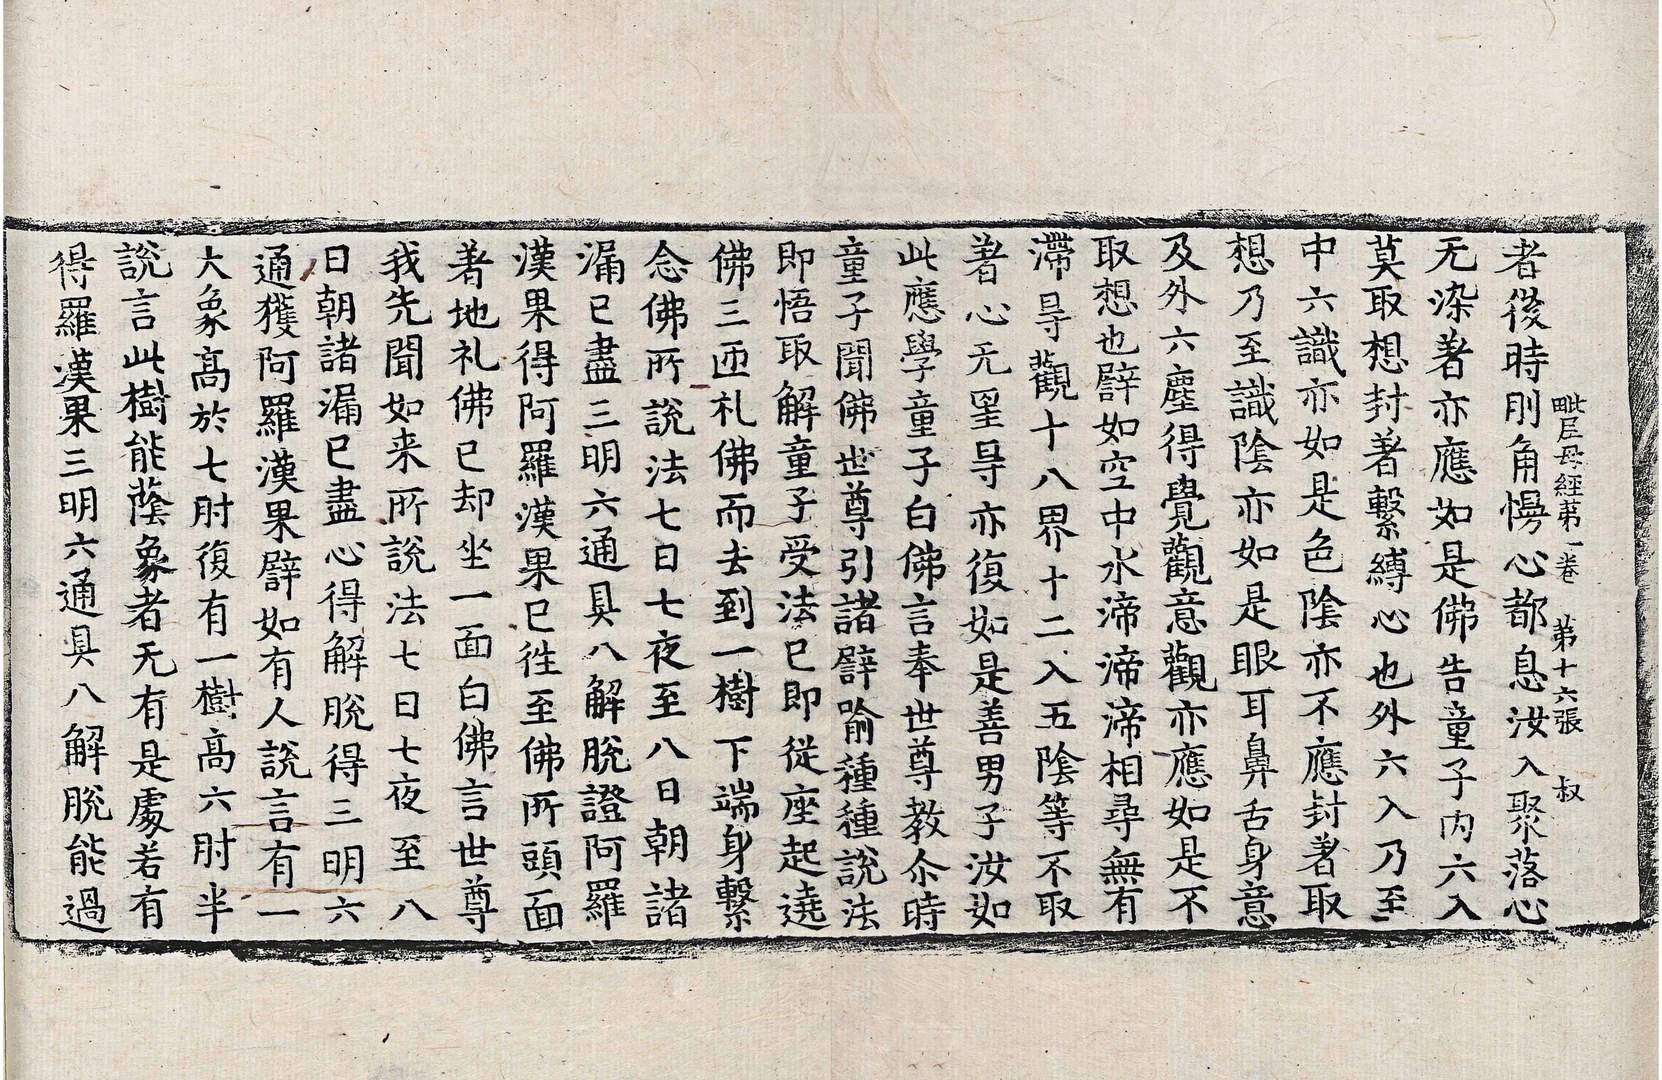 毗尼母經第一卷 第十六張 叔
者後時刖角慢心都息汝入聚落心
无染著亦應如是佛告童子内六入
莫取想封著繫縛心也外六入乃至
中六識亦如是色陰亦不應封著取
想乃至識陰亦如是眼耳鼻舌身意
及外六塵得覺觀意觀亦應如是不
取想也譬如空中水渧渧渧相尋無有
滯㝵觀十八界十二入五陰等不取
著心无罣㝵亦復如是善男子汝如
此應學童子白佛言奉世尊教尒時
童子聞佛世尊引諸譬喻種種說法
即悟取解童子受法已即從座起遶
佛三匝礼佛而去到一樹下端身繫
念佛所說法七日七夜至八日朝諸
漏已盡三明六通具八解脫證阿羅
漢果得阿羅漢果已徃至佛所頭面
著地礼佛已却坐一面白佛言世尊
我先聞如来所說法七日七夜至八
日朝諸漏已盡心得解脫得三明六
通獲阿羅漢果譬如有人說言有一
大象高於七肘復有一樹高六肘半
說言此樹能蔭象者无有是處若有
得羅漢果三明六通具八解脫能過